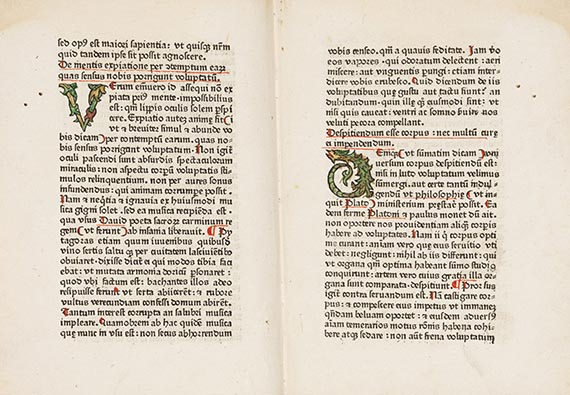 sed op⁹ est maiori sapientia: vt quisq; nr̄m
quid tandem ipse sit possit agnoscere.
De mentis expiatione per ꝯtemptum earꝝ
quas sensus nobis porrigunt voluptatū.
VErum enuero id assequi nō ex
piata pri⁹ mente impossibilius
est: qm̄ lippis oculis solem pspi
cere. Expiatio autez animę sic
vt ⁊ breuiter simul ⁊ abunde vo
bis dicam per contemptū earum. quas no
bis sensus porrigunt voluptatum. Non igit̄
oculi pascendi sunt absurdis spectaculorum
miraculis: non aspectu corpū voluptatis sti
mulos relinquentium. non per aures sonus
infundendus: qui animam corrumpere possit.
Nam ⁊ neq̄tia ⁊ ignauia ex huiusmodi mu
sica gigni solet. sed ea musica recipiēda est.
qua vsus Dauid poeta sacrorꝝ carminum re
gem vt fertur ab insania liberauit. Py
tagoras etiam quum iuuenibus quibusdā
vino sertis saltuq; per ciuitatem lasciuiētib⁹
obuiaret. dixisse dicit̄ ei qui modos tibia faci
ebat: vt mutata armonia doricū psonaret:
quod vbi factum est: bachantes illos adeo
respuisse ferunt vt serta abiicerēt: ⁊ rubore
vultus verecundiam confessi domum abirēt.
Tantum interest corrupta an salubri musica
impleare. Quamobrem ab hac quidē musica
que nunc in vsu est: non secus abhorrendum
vobis censeo. qm̄ a quauis feditate. Iam vo
eos vapores qui odoratum delectent: aeri
miscere: aut vnguentis pungi: etiam inter
dicere vobis erubesco. Quid dicendum de iis
voluptatibus que gustu aut tactu fiunt? an
dubitandum: quin illę q̄ꝫ eiusmodi sint: vt
nisi quis caueat: ventri ac somno suib⁹ nos
veluti pecora compellant.
Despiciendum esse corpus: nec multū curę
ei impendendum.
vt summatim dicam vni
uersum corpus despiciendū est:
nisi in luto voluptatum velimus
sumergi. aut certe tantū indul
gendū vt philosophie vt in
quit Plato ministerium prestare possit. Ea
dem ferme Platoni ⁊ paulus monet dū ait.
non oportere nos prouidentiam aliqm̄ corpis
habere ad voluptates. Nam ii q̄ corpus opti
me curant: aniam vero que eius seruitio vti
debet: negligunt: nihil ab iis differunt: qui
vt organa qm̄ optima habeant sūmo studio
conquirunt: artem vero cuius gratia illa or
gana sunt comparata: despiciunt. Prorsus
igit̄ contra seruandum est. Nā castigare cor
pus: ⁊ compescere eius impetus vt immanez
quādam beluam oportet: ⁊ eiusdem aduersꝰ
aiam temerarios motus rōnis habena cohi
bere atqꝫ sedare: non aūt frena voluptatum